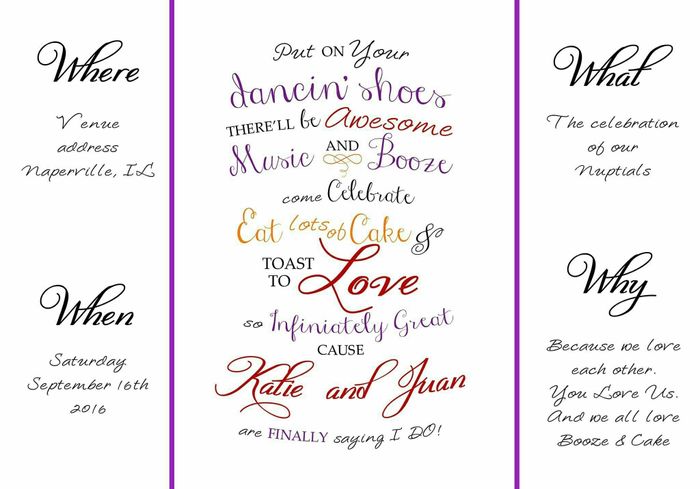 Where
Venue
address
Naperville, IL
When
Saturday
September 16th
2016
Put on Your
dancin' shoes
THERE'LL be Awesome
Music AND Booze
come Celebrate
Eat lots of Cake &
TOAST
TO Love
so Infiniately Great
CAUSE
Katie and Juan
are FINALLY saying I DO!
What
The celebration
of our
Nuptials
Why
Because we love
each other.
You Love Us.
And we all love
Booze & Cake